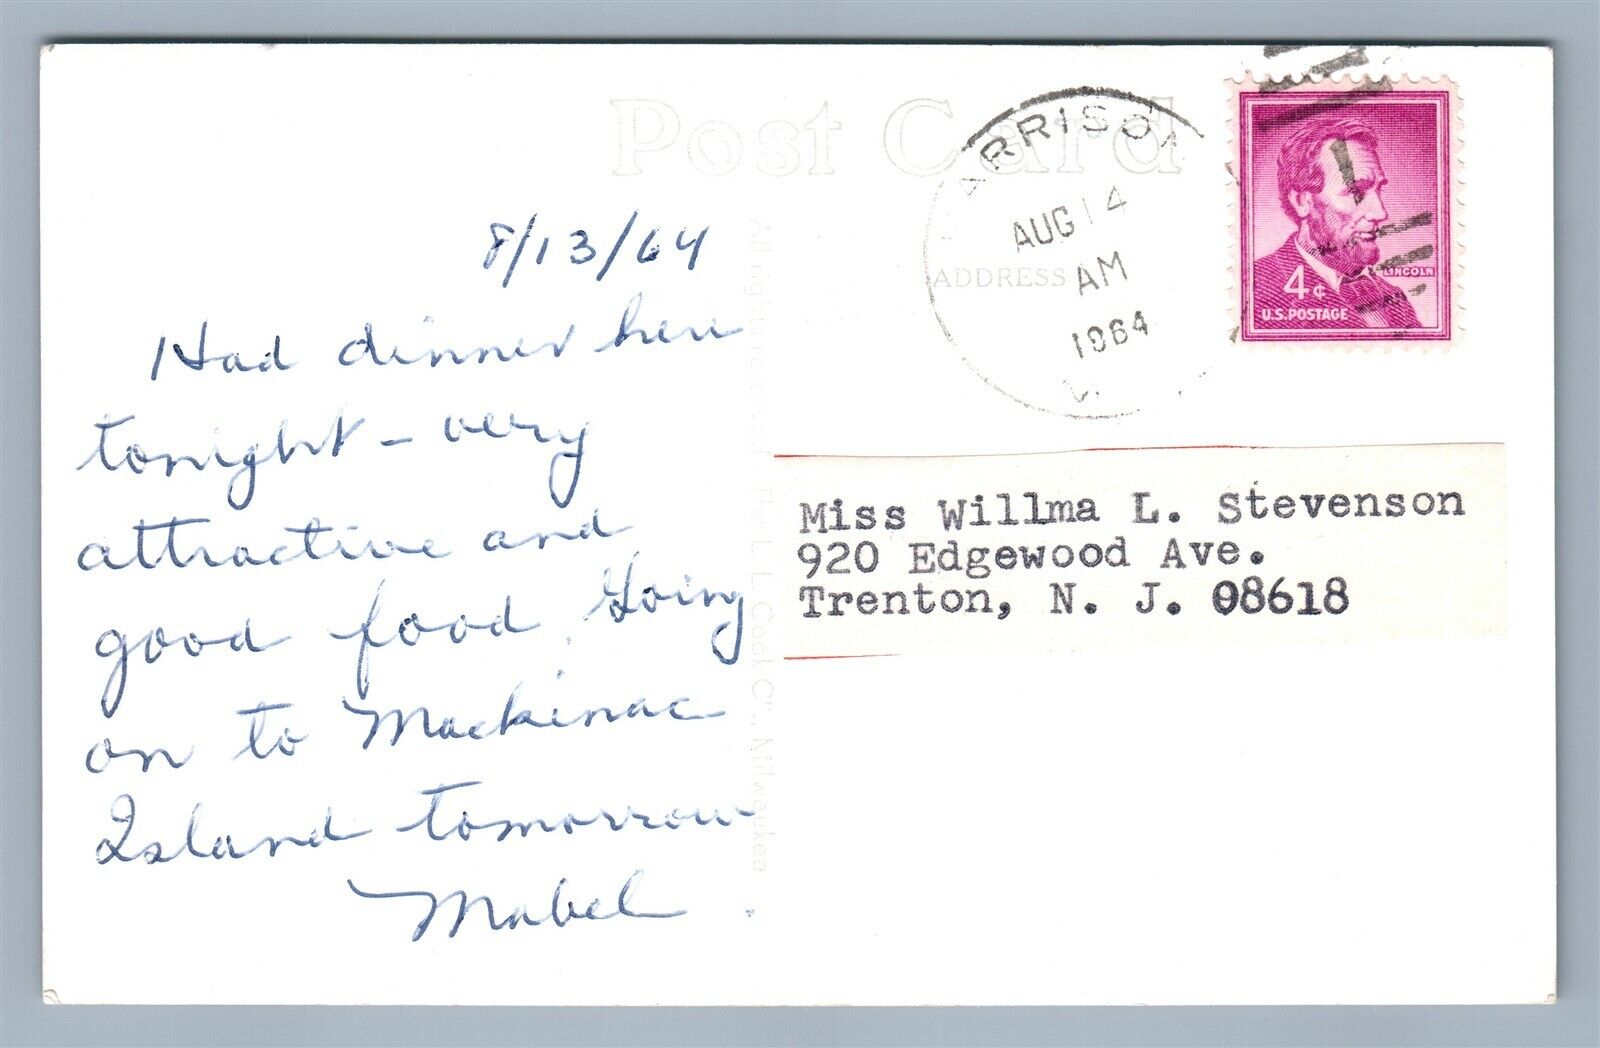 Post Card
ADDRESS
ARRISON
AUG 14
AM
1964
4¢
LINCOLN
U.S. POSTAGE
8/13/64
Had dinner here
tonight - very
attractive and
good food. Going
on to Mackinac
Island tomorrow
Mabel.
All rights reserved The L. L. Cook Co., Milwaukee
Miss Willma L. Stevenson
920 Edgewood Ave.
Trenton, N. J. 08618